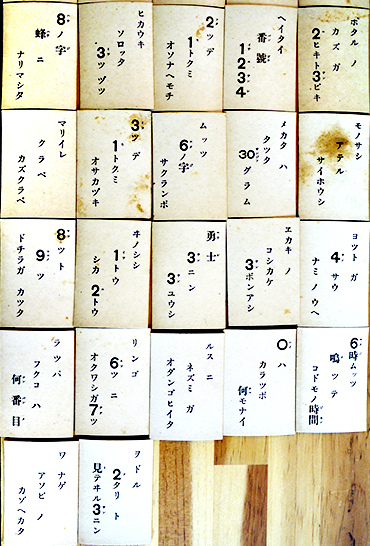 8ノ字
蜂ニ
ナリマシタ
ヒカウキ
ソロッタ
3ツヅツ
2ツデ
1トクミ
オソナヘモチ
ヘイタイ
番號
1234
ホタルノ
カズガ
2ヒキト3ビキ
マリイレ
クラベ
カズクラベ
3ツデ
1トクミ
オサカヅキ
ムッツ
6ノ字
サクランボ
メカタハ
タツタ
30グラム
モノサシ
アテル
サイホウシ
8ツト
9ツ
ドチラガカツク
ヰノシシ
1トウ
シカ2トウ
勇士
3ニン
3ユウシ
ヱカキノ
コシカケ
3ボンアシ
ヨツトガ
4サウ
ナミノウヘ
ラツパ
フクコハ
何番目
リンゴ
6ツニ
オクワシガ7ツ
ルスニ
ネズミガ
オダンゴヒイタ
0ハ
カラツポ
何モナイ
6時ムッツ
鳴ツテ
コドモノ時間
ワナゲ
アソビノ
カゾヘカタ
ヲドル
2タリト
見テヰル3ニン